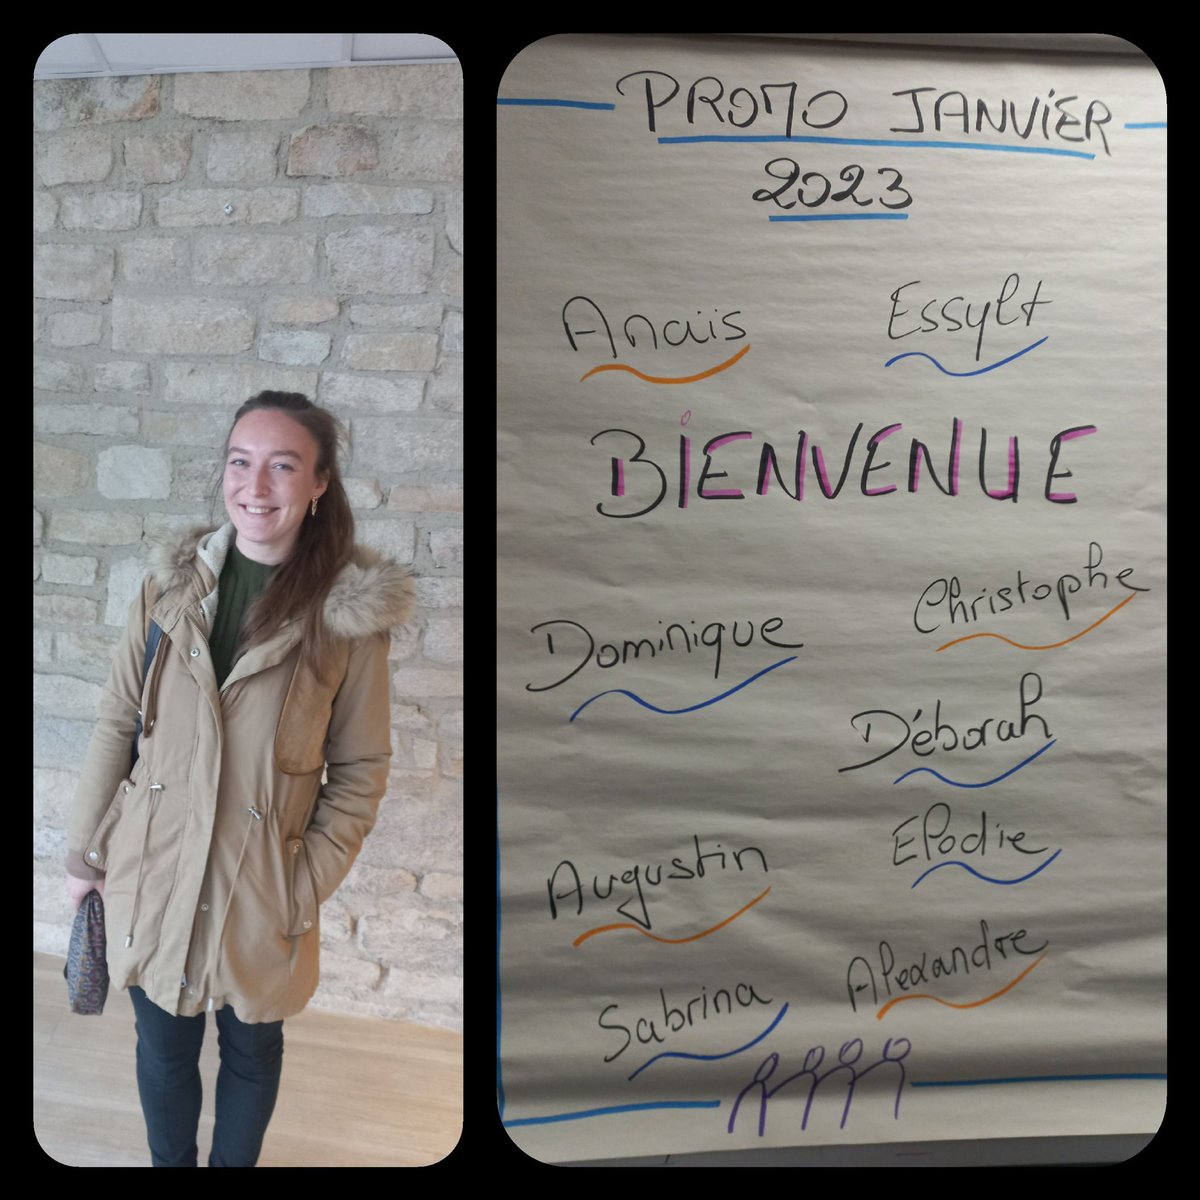 PROMO JANVIER
2023
Anaïs
Essylt
BIENVENUE
Christophe
Dominique
Déborah
Elodie
Augustin
Alexandre
Sabrina